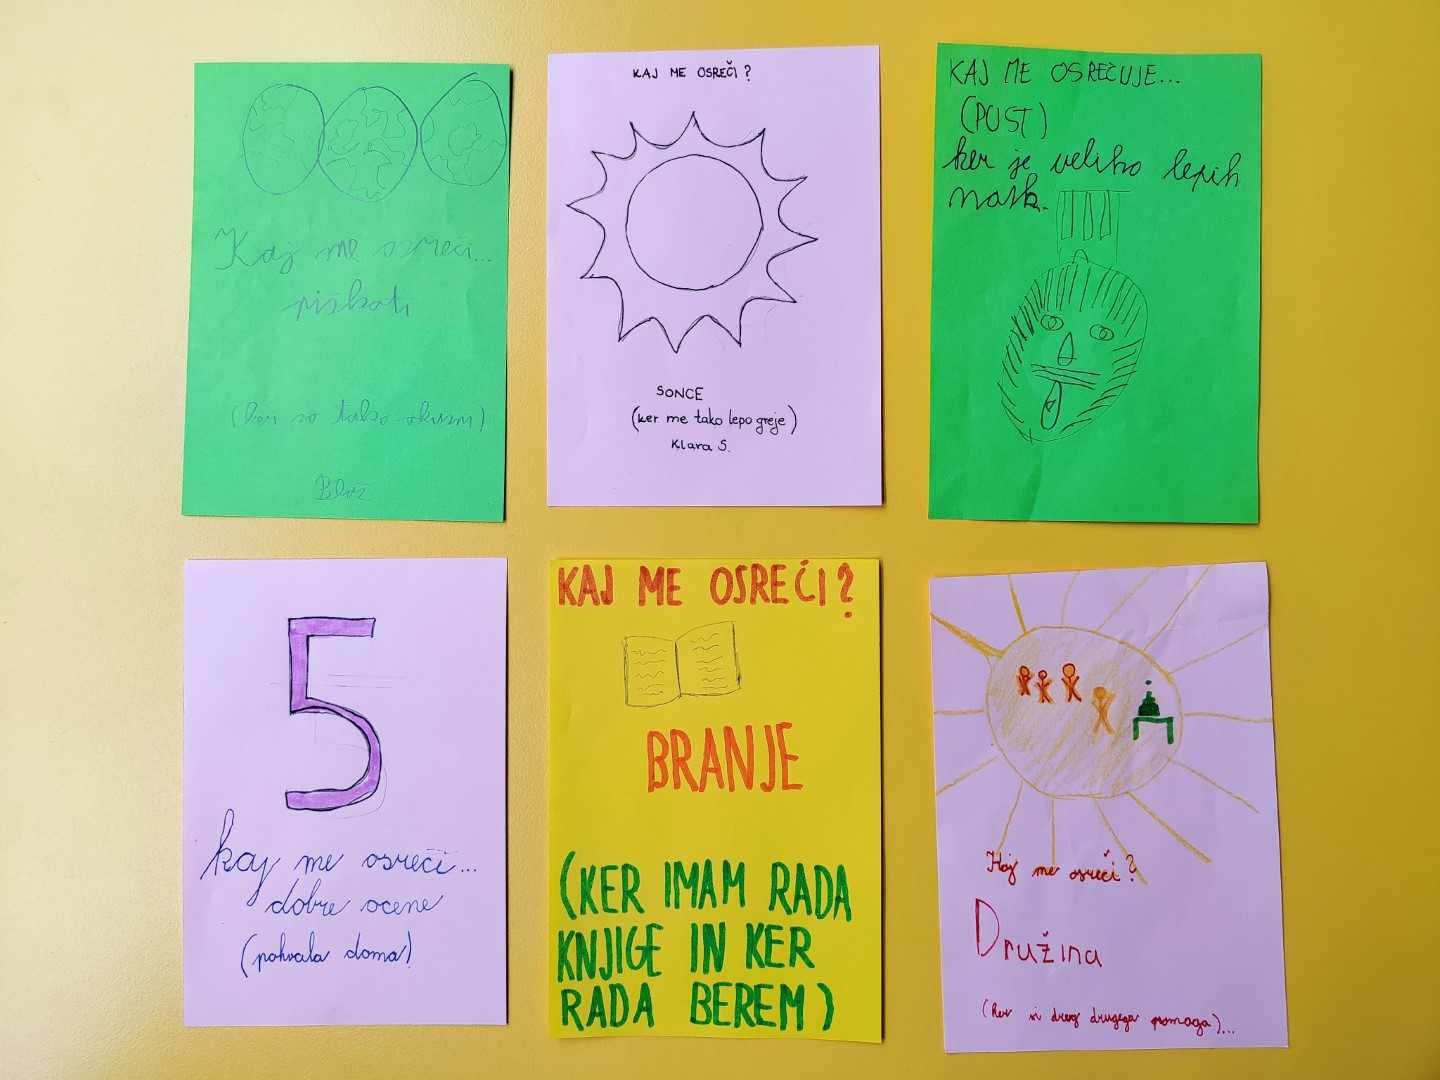 Kaj me osreči...
piškoti
(ker so tako okusni)
Blaž
KAJ ME OSREČI?
SONCE
(ker me tako lepo greje)
Klara S.
KAJ ME OSREČUJE...
(PUST)
ker je veliko lepih
mask.
5
kaj me osreči...
dobre ocene
(pohvala doma)
KAJ ME OSREČI?
BRANJE
(KER IMAM RADA
KNJIGE IN KER
RADA BEREM)
Kaj me osreči?
Družina
(Ker si drug drugega pomaga)...